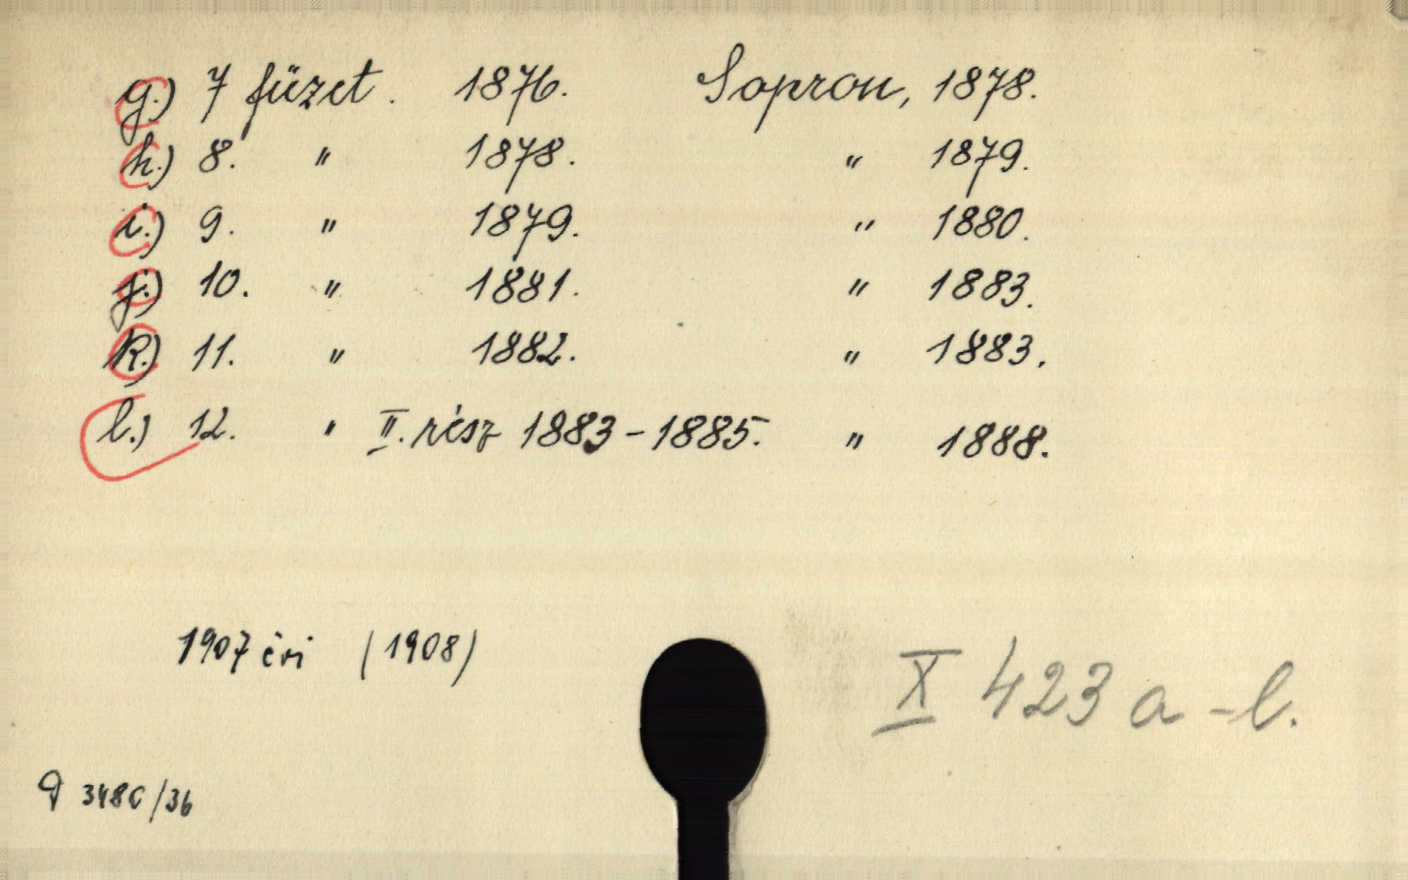 g.) 7 füzet. 1876. Sopron, 1878.
h.) 8. " 1878. " 1879.
i.) 9. " 1879. " 1880.
j.) 10. " 1881. " 1883.
k.) 11. " 1882. " 1883.
l.) 12. " II. rész 1883-1885. " 1888.
1907 évi (1908)
X 423 a-l.
/36